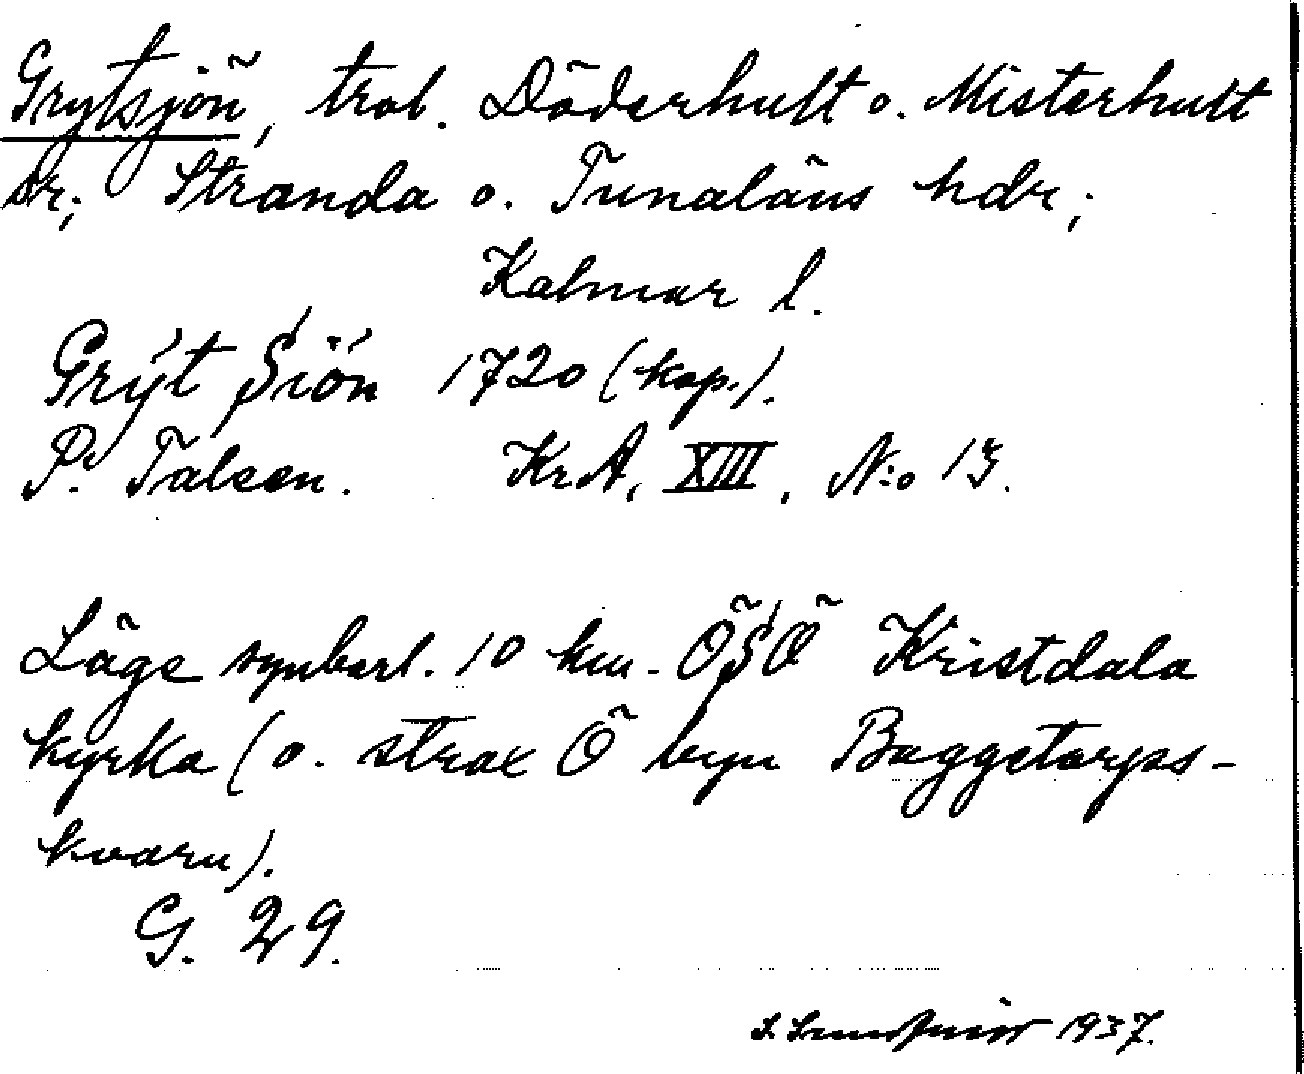 Grytsjön, trol. Döderhult o. Misterhult
sr; Stranda o. Tunaläns hdr;
Kalmar l.
Grÿt Siön 1720 (kop.).
P. Talsen. KrA, XIII, N:o 13.
Läge synbarl. 10 km. ÖSÖ Kristdala
kyrka (o. strax Ö byn Baggetorps-
kvarn).
G. 29.
S. Sundqvist 1937.